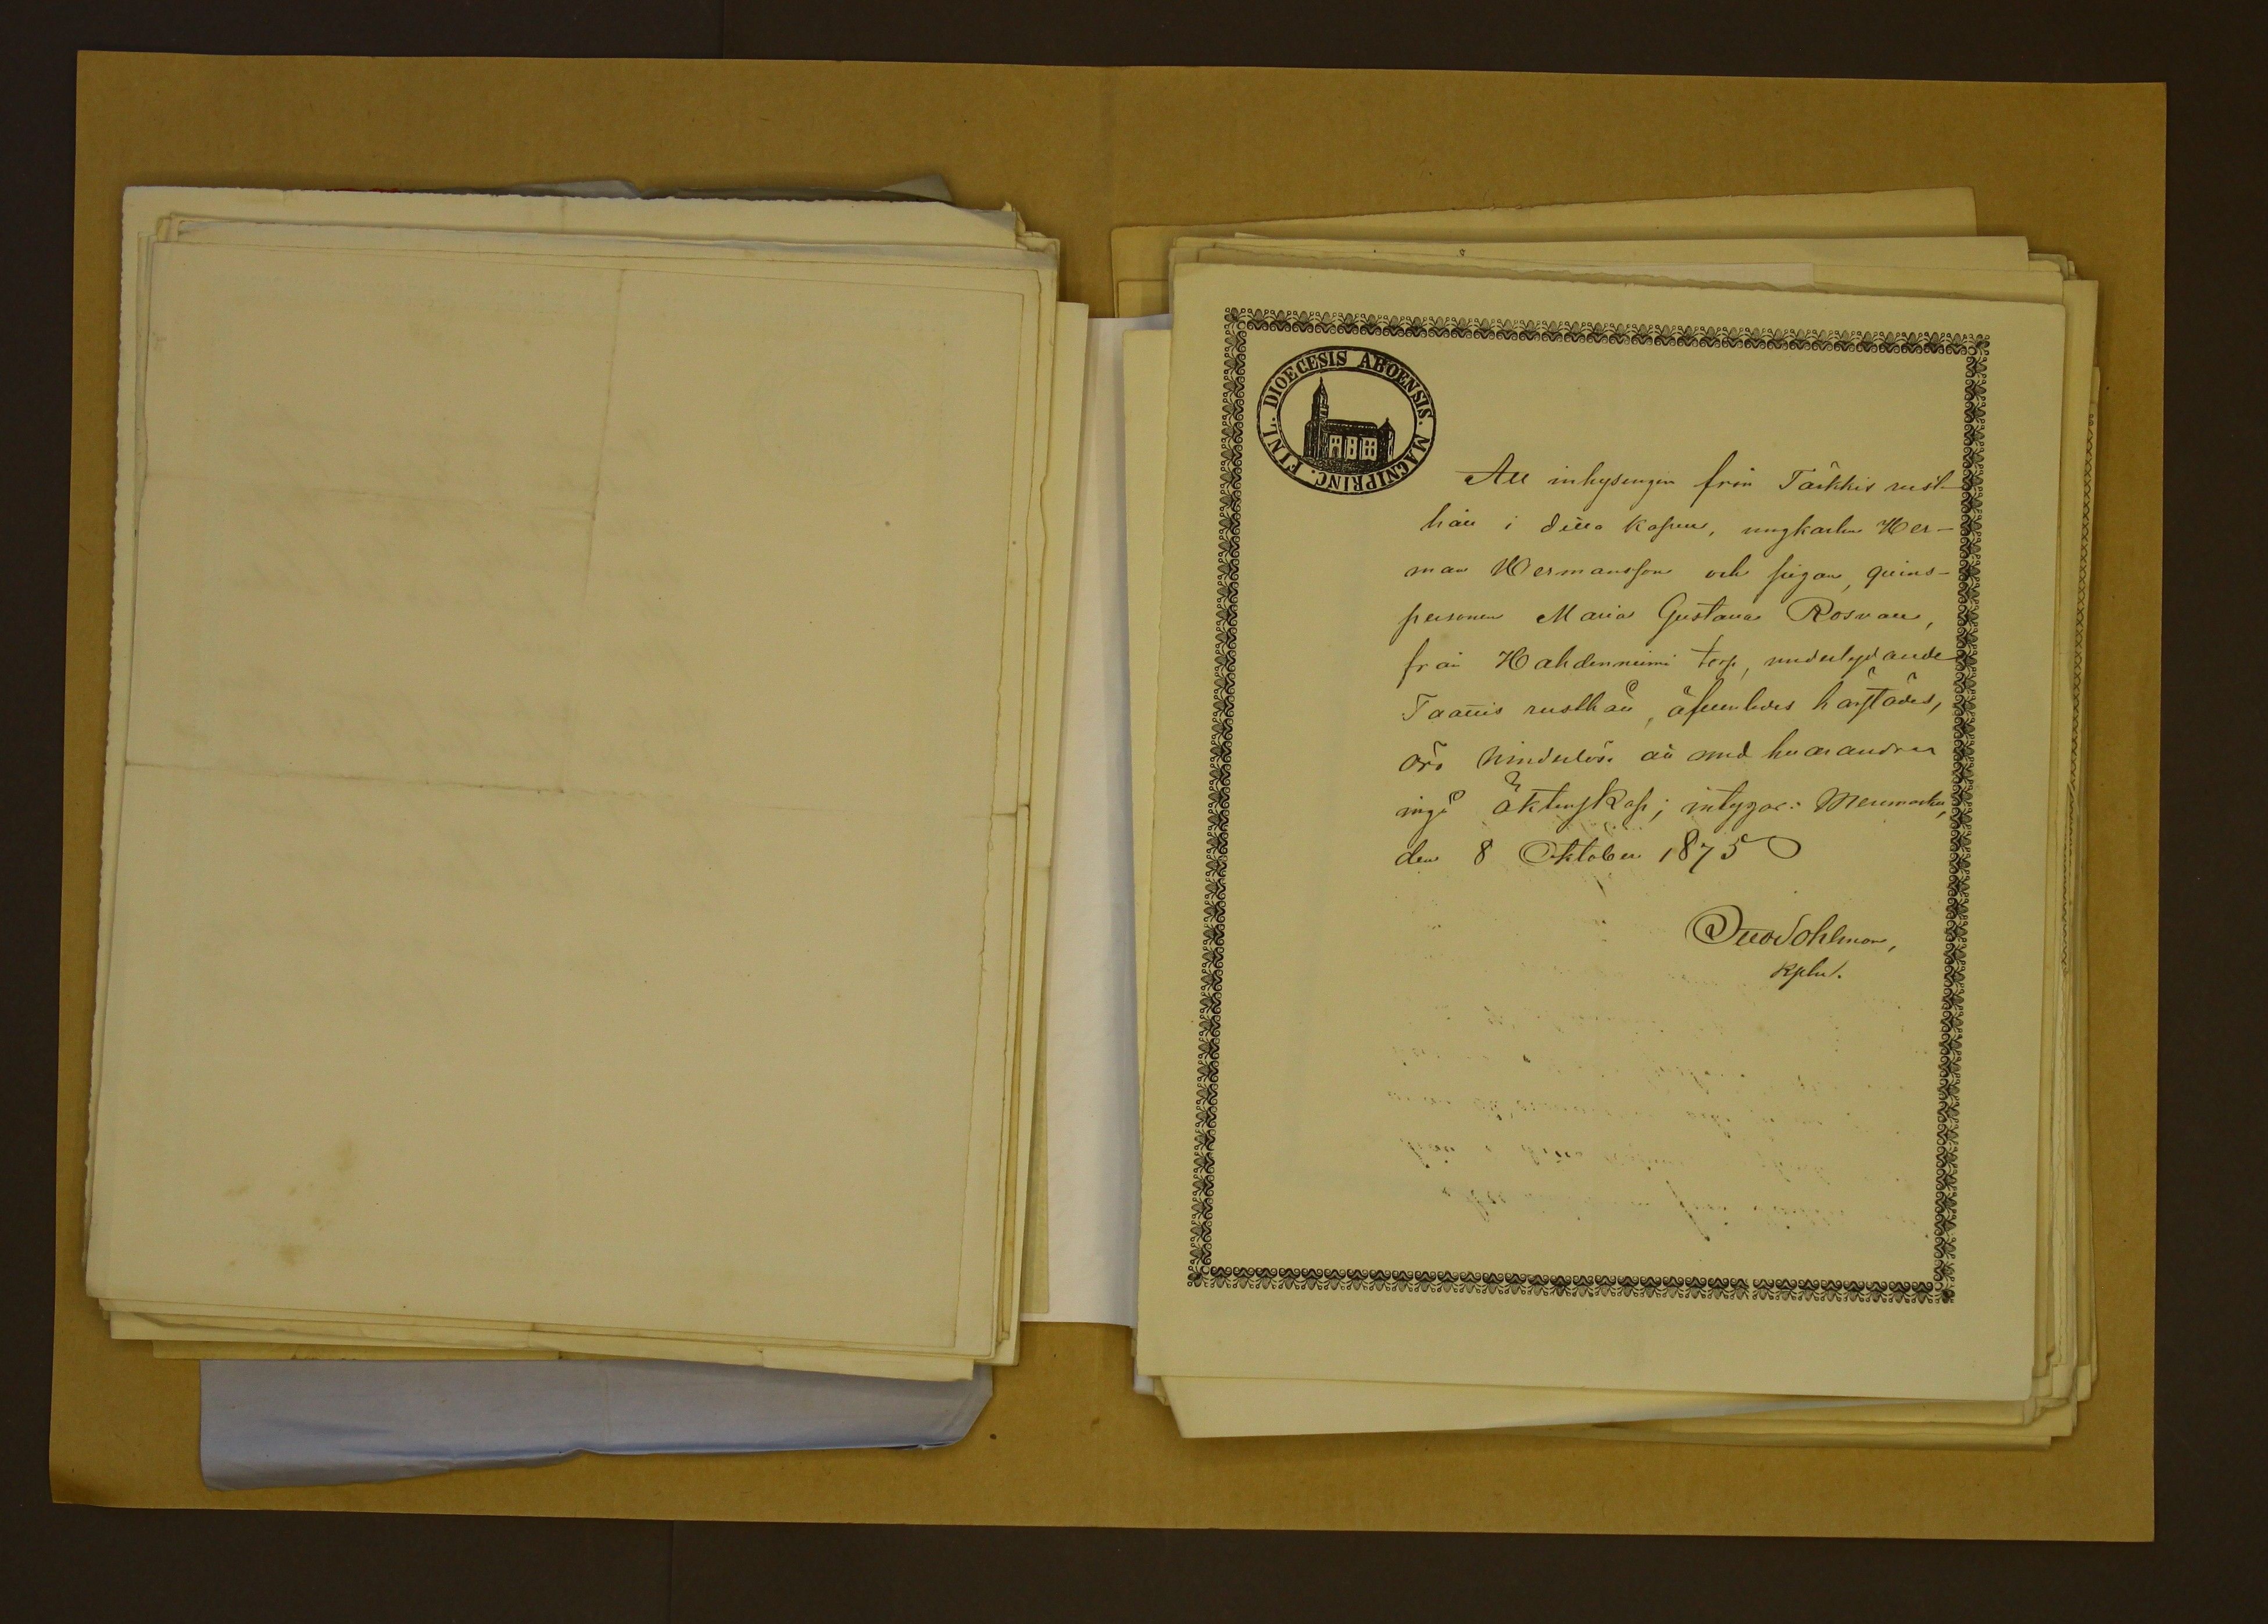 DIOECESIS ABOENSIS. MAGNIPRINC. FINL.
Att inhysingen från Tärkkis rust-
håll i detta kapell, ungkarlen Her-
man Hermansson och pigan, qvins-
personen Maria Gustava Rosvall,
från Hahdenniemi torp, underlydande
rusthåll, äfvenledes härstädes,
äro hinderlösa att med hvarandra
ingå äktenskap; intygar: Merimasku,
den 8 Oktober 1875
Otto Sohlman,
Kpln.